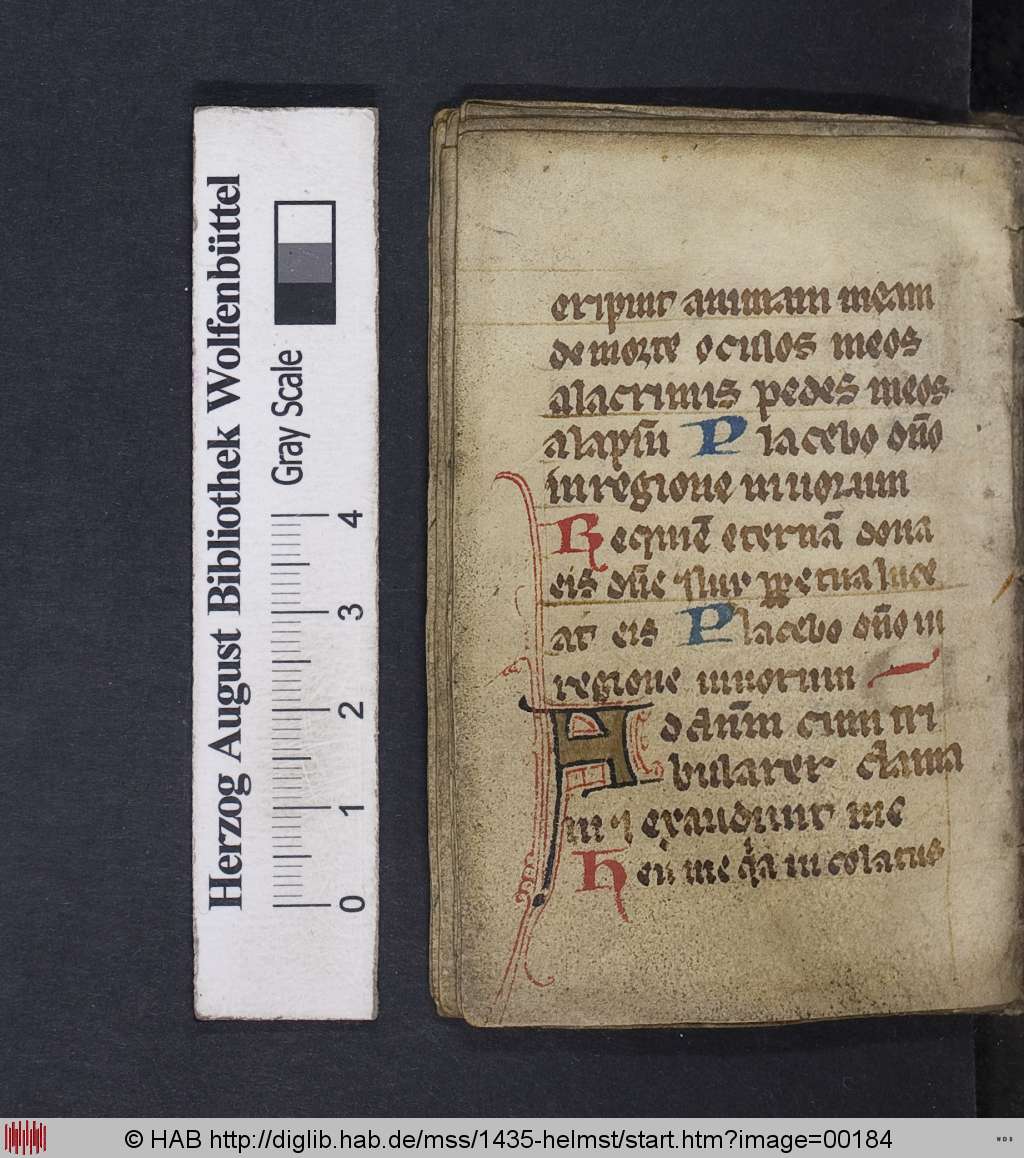 Herzog August Bibliothek Wolfenbüttel
Gray Scale
0 1 2 3 4
eripuit animam meam
de morte oculos meos
a lacrimis pedes meos
a lapsu Placebo dño
in regione uiuorum
Requiē eternā dona
eis dñe ⁊ lux ꝑpetua luce
at eis Placebo dño in
regione uiuorum
Ad dñm cum tri
bularer clama
ui ⁊ exaudiuit me
Heu me qͣa incolatus
© HAB http://diglib.hab.de/mss/1435-helmst/start.htm?image=00184